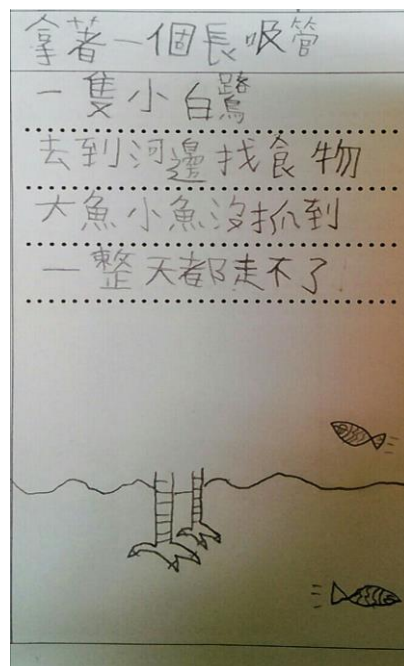 拿著一個長吸管
一隻小白鷺
去到河邊找食物
大魚小魚沒抓到
一整天都走不了